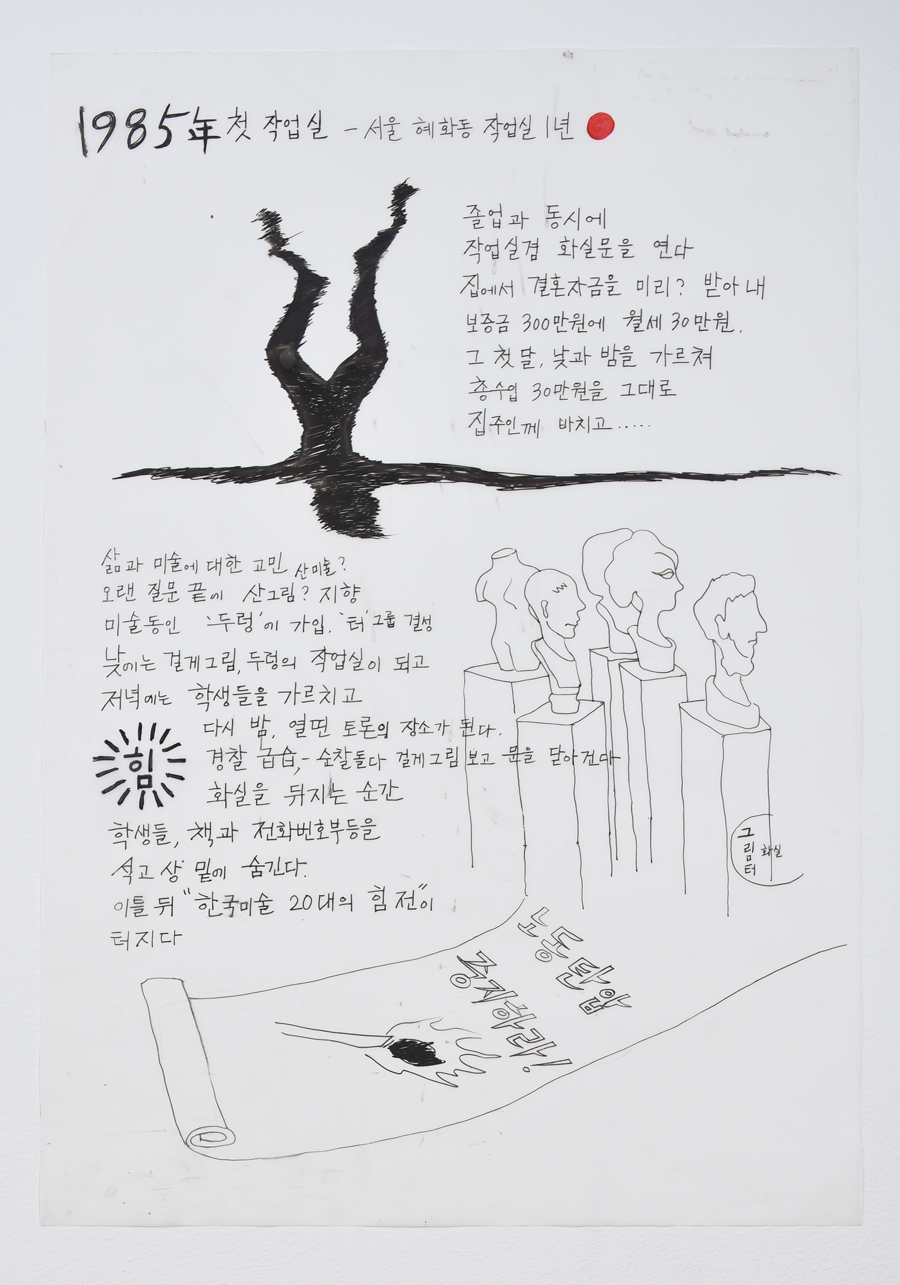 1985年 첫 작업실 - 서울 혜화동 작업실 1년
졸업과 동시에
작업실겸 화실문을 연다
집에서 결혼자금을 미리? 받아내
보증금 300만원에 월세 30만원.
그 첫달, 낮과 밤을 가르쳐
총수입 30만원을 그대로
집주인께 바치고.....
삶과 미술에 대한 고민 산미술?
오랜 질문 끝에 산그림? 지향
미술동인 '두렁'에 가입. '터' 그룹 결성
낮에는 걸게그림, 두렁의 작업실이 되고
저녁에는 학생들을 가르치고
다시 밤, 열띤 토론의 장소가 된다.
힘
경찰 급습,- 순찰돌다 걸게그림 보고 문을 닫아건다
화실을 뒤지는 순간
학생들, 책과 전화번호부등을
석고상 밑에 숨긴다.
이틀 뒤 "한국미술 20대의 힘 전"이
터지다
그림터
화실
노동탄압
중지하라!